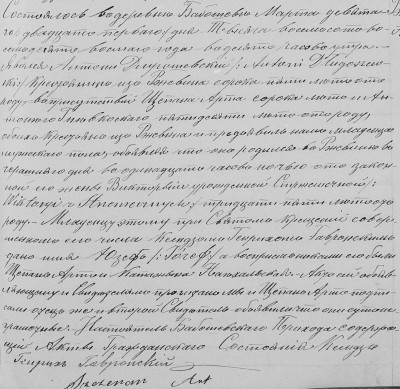 Состоялось въ деревнѣ Бабошево Марта девята-
го / двадцать перваго / дня тысяча восемьсотъ во-
семдесятъ восьмаго года въ десять часовъ утра.
Явился Антоній Длугошевскій /: Antoni Długoszew-
ski :/ крестьянинъ изъ сорока пяти лѣтъ отъ
роду, въ присутствіи Щепана Арта сорока лѣтъ и Ан-
тонего пятидесяти лѣтъ отъ роду,
обоихъ крестьянъ изъ и предъявилъ намъ младенца
мужескаго пола, объявляя что онъ родился въ во
вчерашняго дня въ одинадцать часовъ ночью отъ закон-
ной его жены Викторіи урожденной
/: Wiktoryi z :/ тридцати пяти лѣтъ отъ
роду. Младенцу этому при Святомъ Крещеніи совер-
шенномъ его числа Ксендзомъ Генрихомъ Гавронскимъ
дано имя Юзефъ /: Józef :/ а воспріемниками его были
Щепанъ Артъ и Актъ сей объяв-
ляющему и Свидѣтелямъ прочитанъ Нами и Щепаномъ Артъ подпи-
санъ отецъ же и второй Свидѣтель объявили что они
неграмотные. Настоятель Бабошевскаго Прихода содержа-
щій Акты Гражданскаго Состоянія Ксендзъ
Генрихъ Гавронскій